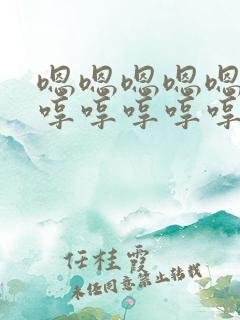 嗯嗯嗯嗯嗯
哼哼哼哼哼
任桂霞
未经同意禁止转载